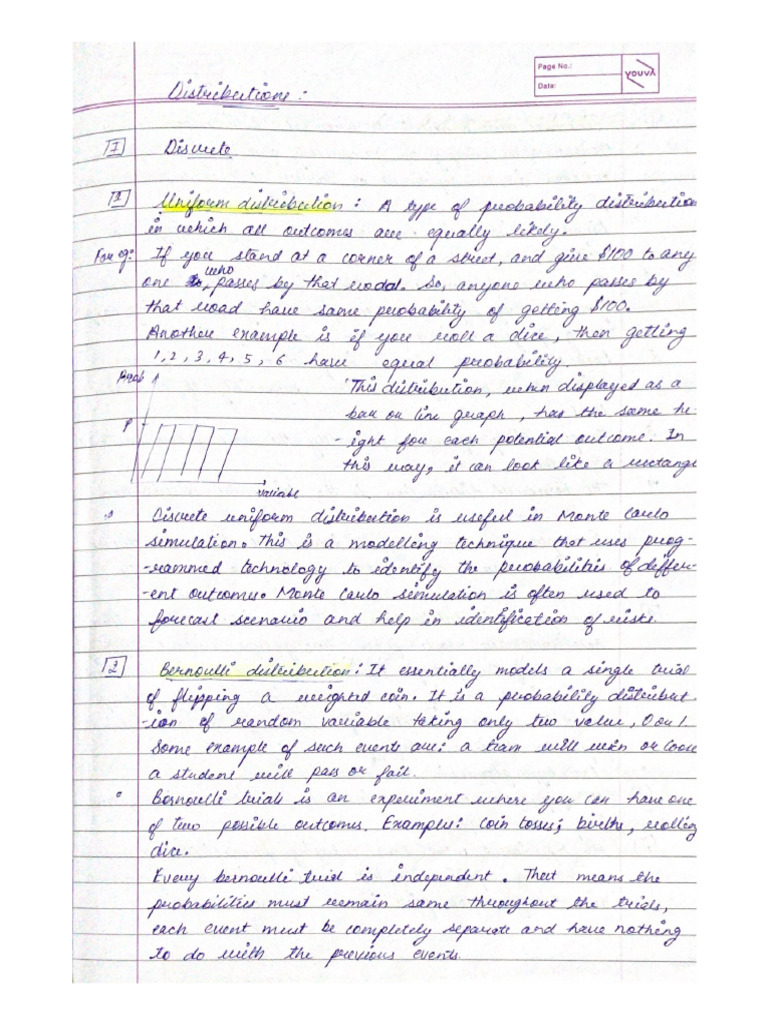 Page No.:
Date:
YOUVA
Distributions:
1 Discrete
1 Uniform distribution : A type of probability distribution
in which all outcomes are equally likely.
For eg: If you stand at a corner of a street, and give $100 to any
one who passes by that road. So, anyone who passes by
that road have same probability of getting $100.
Another example is if you roll a dice, then getting
1, 2, 3, 4, 5, 6 have equal probability.
Prob
P
variable
This distribution, when displayed as a
bar or line graph, has the same he-
-ight for each potential outcome. In
this way, it can look like a rectangle
Discrete uniform distribution is useful in Monte Carlo
simulation. This is a modelling technique that uses prog-
-rammed technology to identify the probabilities of differ-
-ent outcome. Monte Carlo simulation is often used to
forecast scenario and help in identification of risks.
2 Bernoulli distribution: It essentially models a single trial
of flipping a weighted coin. It is a probability distribut
-ion of random variable taking only two value, 0 or 1.
Some example of such events are: a team will win or loose
a student will pass or fail.
Bernoulli trials is an experiment where you can have one
of two possible outcomes. Examples: coin tosses; births, rolling
dice.
Every bernoulli trial is independent. That means the
probabilities must remain same throughout the trials,
each event must be completely separate and have nothing
to do with the previous events.